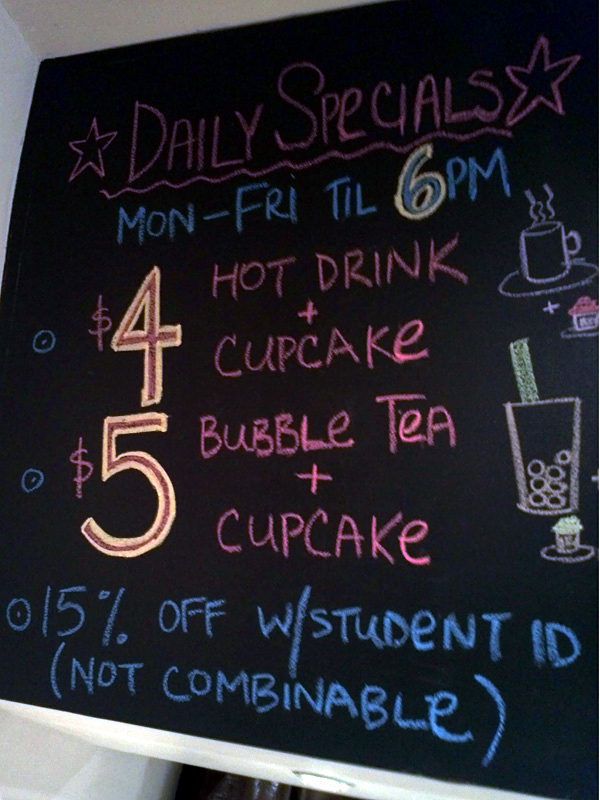 DAILY SPECIALS
MON-FRI TIL 6PM
$4 HOT DRINK
+
CUPCAKE
$5 BUBBLE TEA
+
CUPCAKE
15% OFF W/STUDENT ID
(NOT COMBINABLE)